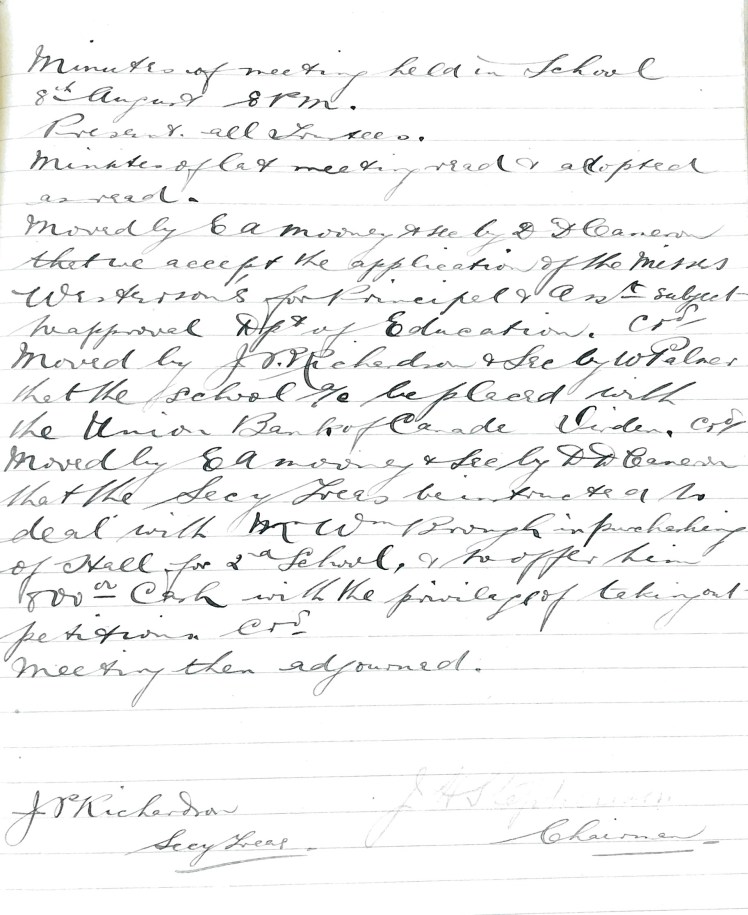 Minutes of meeting held in School
8th August 8 P.M.
Present. all Trustees.
Minutes of last meeting read & adopted
as read.
Moved by E A Mooney & Sec by D D Cameron
that we accept the application of the Misses
for Principal & Asst subject
to approval Dpt of Education. Crd
Moved by J P Richardson & Sec by W Palmer
that the school a/c be placed with
the Union Bank of Canada Virden. Crd
Moved by E A Mooney & Sec by D D Cameron
that the Secy Treas be instructed to
deal with Mr Wm Brough in purchasing
of Hall for 2nd School, & to offer him
800 00 Cash with the privilage of taking out
petitions Crd
Meeting then adjourned.
J P Richardson
Secy Treas.
J H
Chairman.